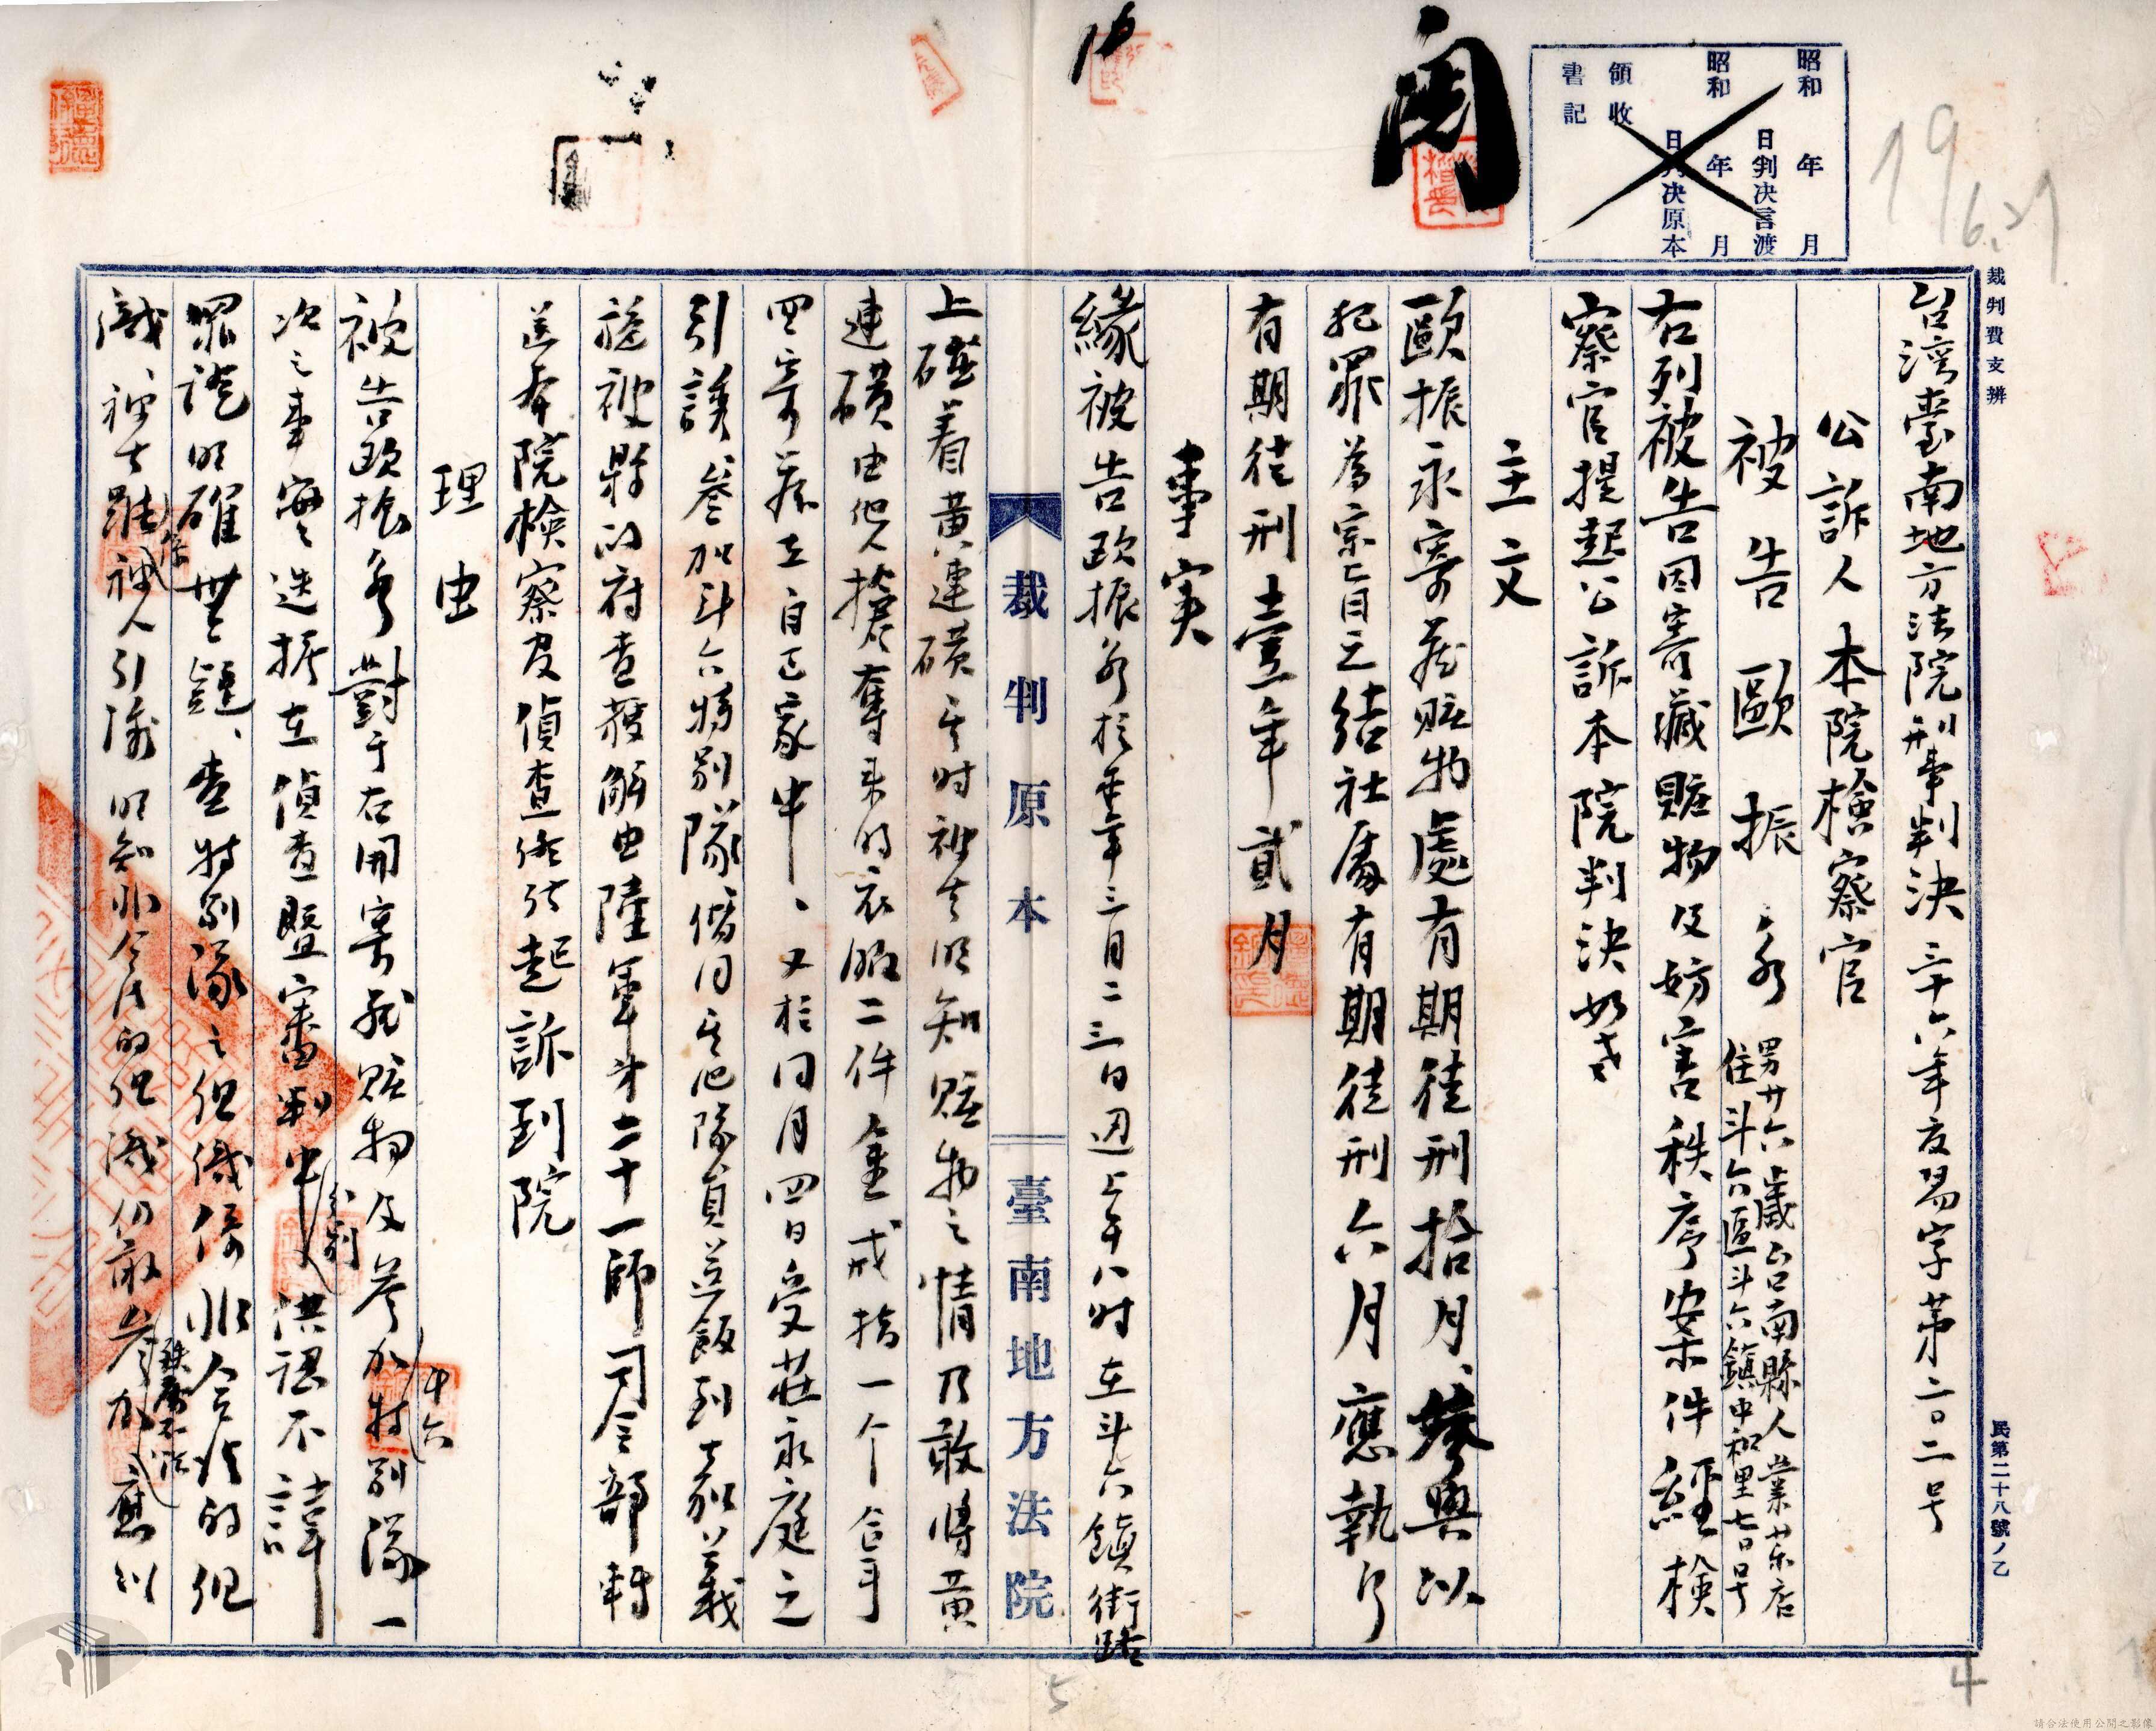 台湾臺南地方法院刑事判決 三十六年度易字第二0二号
公訴人 本院檢察官
被告 歐振永 男廿六歲台南縣人業茶店
住斗六區斗六鎮中和里七0号
右列被告因寄藏贓物及妨害秩序案件經檢
察官提起公訴本院判決如左
主文
歐振永寄藏贓物處有期徒刑拾月、參與以
犯罪為宗旨之結社處有期徒刑六月應執行
有期徒刑壹年貳月
事実
緣被告歐振永於本年三月二三日 上午八时在斗六鎮街路
上碰着黃連磺 时被告明知贓物之情乃敢將黃
連磺由他人搶奪来的衣服二件金戒指一个
四寄藏在自己家中、又於同月四日受莊永庭之
引誘、參加斗六特别隊偕同其他隊員送飯到嘉義
旋被縣政府查獲解由陸軍第二十一師司令部轉
送本院檢察及偵查終結起訴到院
理由
被告歐振永對于右開寄藏贓物及參加特别隊一
次之事實迭據在偵查暨審判中 供認不諱
罪證明確無疑、查特别隊之組織係非合法的組
織、被告雖係被人引誘明知非合法的組織仍敢參加 應以
裁判原本
臺南地方法院
裁判費支辨
民第二十八號ノ乙
昭和 年 月
日判决言渡
昭和 年 月
日判决原本
領收
書記
19
6.27
4
5
請合法使用公開之影像